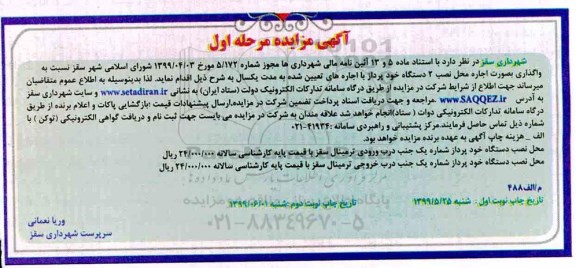 آگهی مزایده مرحله اول
شهرداری سقز در نظر دارد با استناد ماده ۵ و ۱۳ آئین نامه مالی شهرداری ها مجوز شماره ۵/۱۷۲ مورخ ۱۳۹۹/۰۴/۰۳ شورای اسلامی شهر سقز نسبت به
واگذاری بصورت اجاره محل نصب ۲ دستگاه خود پرداز با اجاره های تعیین شده به مدت یکسال به شرح ذیل اقدام نماید. لذا بدینوسیله به اطلاع عموم متقاضیان
میرساند جهت اطلاع از شرایط شرکت در مزایده از طریق درگاه سامانه تدارکات الکترونیک دولت (ستاد ایران) به نشانی www.setadiran.ir و سایت شهرداری سقز
به آدرس www.SAQQEZ.ir مراجعه و جهت دریافت اسناد پرداخت تضمین شرکت در مزایده،ارسال پیشنهادات قیمت ،بازگشایی پاکات و اعلام برنده از طریق
درگاه سامانه تدارکات الکترونیکی دولت ( ستاد)انجام خواهد شد علاقه مندان به شرکت در مزایده می بایست جهت ثبت نام و دریافت گواهی الکترونیکی (توکن ) با
شماره ذیل تماس حاصل فرمایند.مرکز پشتیبانی و راهبردی سامانه :۴۱۹۳۴-۰۲۱
الف _ هزینه چاپ آگهی به عهده برنده مزایده خواهد بود.
محل نصب دستگاه خود پرداز شماره یک جنب درب ورودی ترمینال سقز با قیمت پایه کارشناسی سالانه ۲۴/۰۰۰/۰۰۰ ریال
محل نصب دستگاه خود پرداز شماره یک جنب درب خروجی ترمینال سقز با قیمت پایه کارشناسی سالانه ۲۴/۰۰۰/۰۰۰ ریال
م/الف ۴۸۸
تاریخ چاپ نوبت اول: شنبه ۱۳۹۹/۵/۲۵
تاریخ چاپ نوبت دوم: شنبه ۱۳۹۹/۰۶/۰۱
وریا نعمانی
سرپرست شهرداری سقز
۰۲۱-۸۸۳۴۹۶۷۰-۵